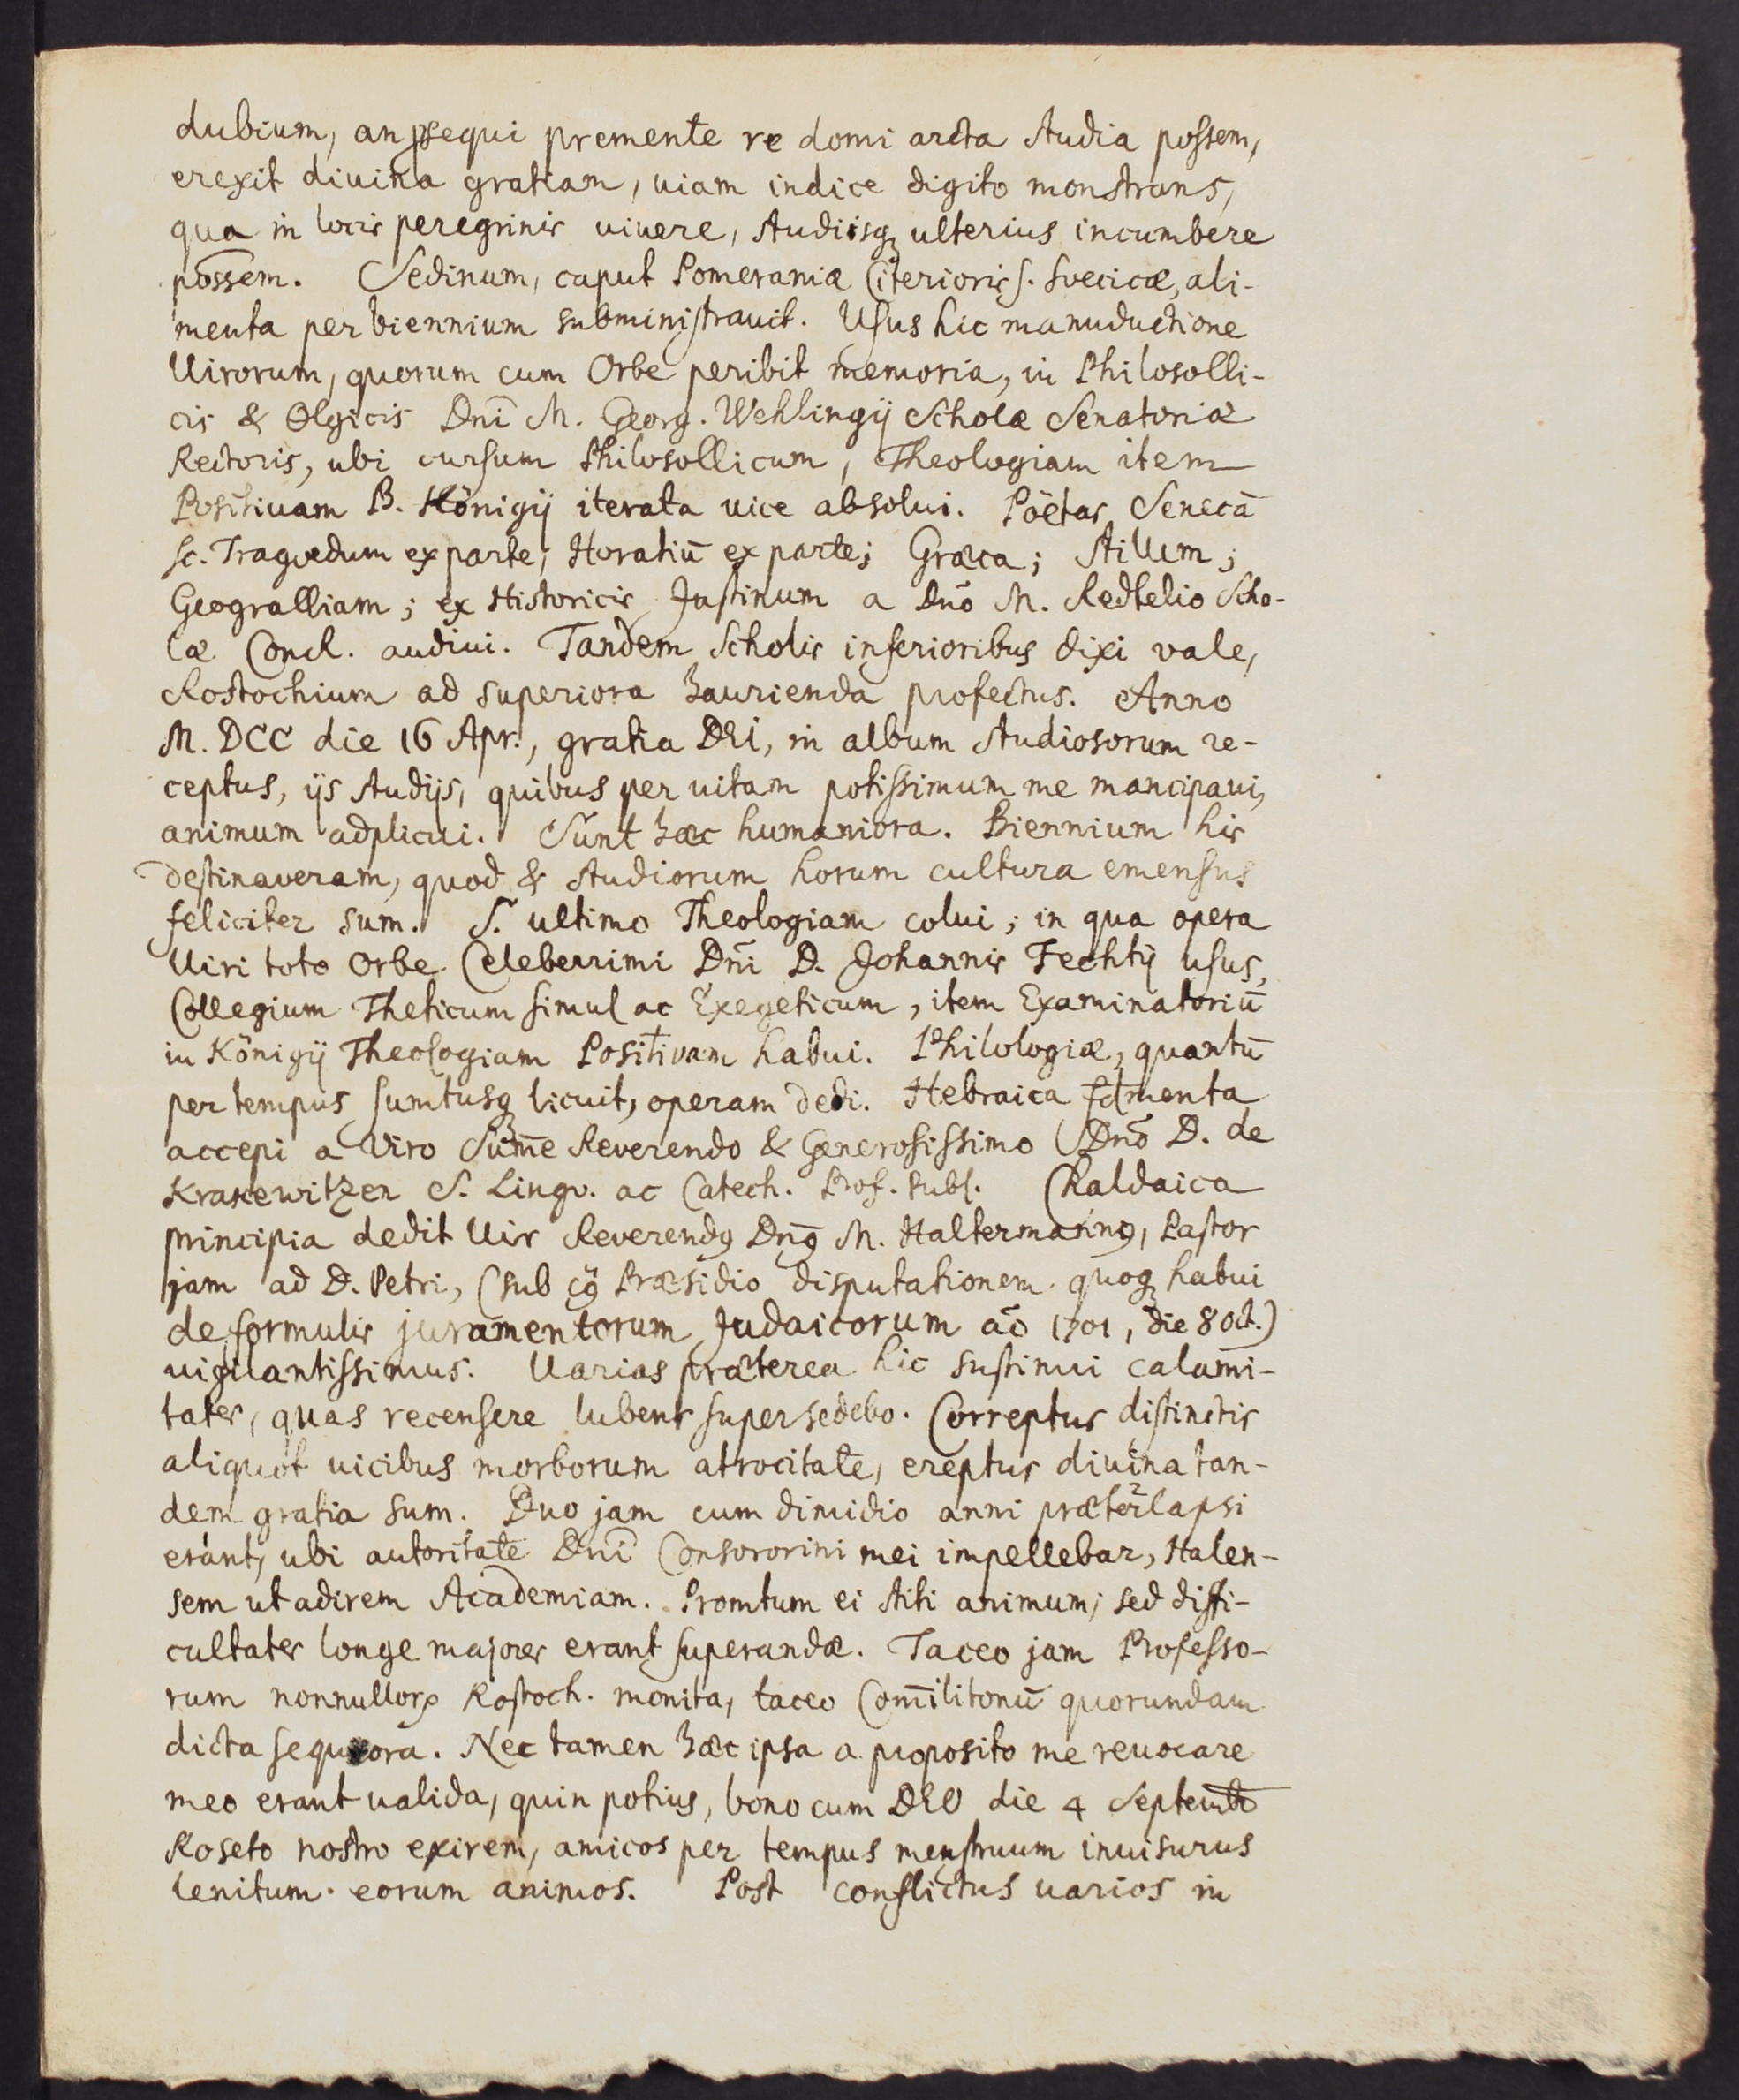 dubium, an ꝓsequi premente re domi arcta studia possem,
erexit divina gratiam, uiam indice digito monstrans,
qua in locis peregrinis uiuere, studiisq ulterius incumbere
possem. Sedinum, caput Pomeraniæ Citerioris s. Svecicæ, ali-
menta per biennium subministrauit. Usus hic manuductione
Uirorum, quorum cum Orbe peribit memoria, in Philosolli-
cis & Olgicis Dn̄i M. Georg. Wehlingij Scholæ Senatoriæ
Rectoris, ubi cursum Philosollicum, Theologiam item
Positiuam B. Königij iterata uice absolui. Poëtas Senecā
sc. Tragoedum ex parte, Horatiū ex parte; Græca; Stillum;
Geogralliam; ex Historicis Justinum a Dn̄o M. Redtelio Scho-
læ Conr. audiui. Tandem Scholis inferioribus dixi vale,
Rostochium ad superiora haurienda profectus. Anno
M. DCC die 16 Apr., gratia DEI, in album Studiosorum re-
ceptus, ijs studijs, quibus per uitam potissimum me mancipaui,
animum adplicui. Sunt hæc humaniora. Biennium his
destinaveram, quod & studiorum horum cultura emensus
feliciter sum. S. ultimo Theologiam colui; in qua opera
Uiri toto Orbe Celeberrimi Dn̄i D. Johannis Fechtij usus,
Collegium Theticum simul ac Exegeticum, item Examinatoriū
in Königij Theologiam Positivam habui. Philologiæ, quantū
per tempus sumtusq licuit, operam dedi. Hebraica fdmenta
accepi a Viro Sum̄e Reverendo & Generosissimo Dn̄o D. de
Krakewitzen S. Lingv. ac Catech. Prof. Publ. Chaldaica
principia dedit Uir Reverendꝰ Dn̄ꝰ M. Haltermannꝰ, Pastor
jam ad D. Petri, (sub cꝰ Præsidio disputationem quoq habui
de formulis juramentorum Judaicorum aō 1701, die 8 Oct.)
uigilantissimus. Uarias præterea hic sustinui calami-
tates, quas recensere lubens supersedebo. Correptus distinctis
aliquot uicibus morborum atrocitate, ereptus diuina tan-
dem gratia sum. Duo jam cum dimidio anni præterlapsi
erant, ubi autoritate Dn̄i Consororini mei impellebar, Halen-
sem ut adirem Academiam. Promtum ei stiti animum; sed diffi-
cultates longe majores erant superandæ. Taceo jam Professo-
rum nonnullorꝝ Rostoch. monita, taceo Com̄ilitonū quorundam
dicta sequiora. Nec tamen hæc ipsa a proposito me reuocare
meo erant ualida, quin potius, bono cum DEO die 4 Septembr
Roseto nostro exirem, amicos per tempus menstruum inuisurus
lenitum eorum animos. Post conflictus uarios in